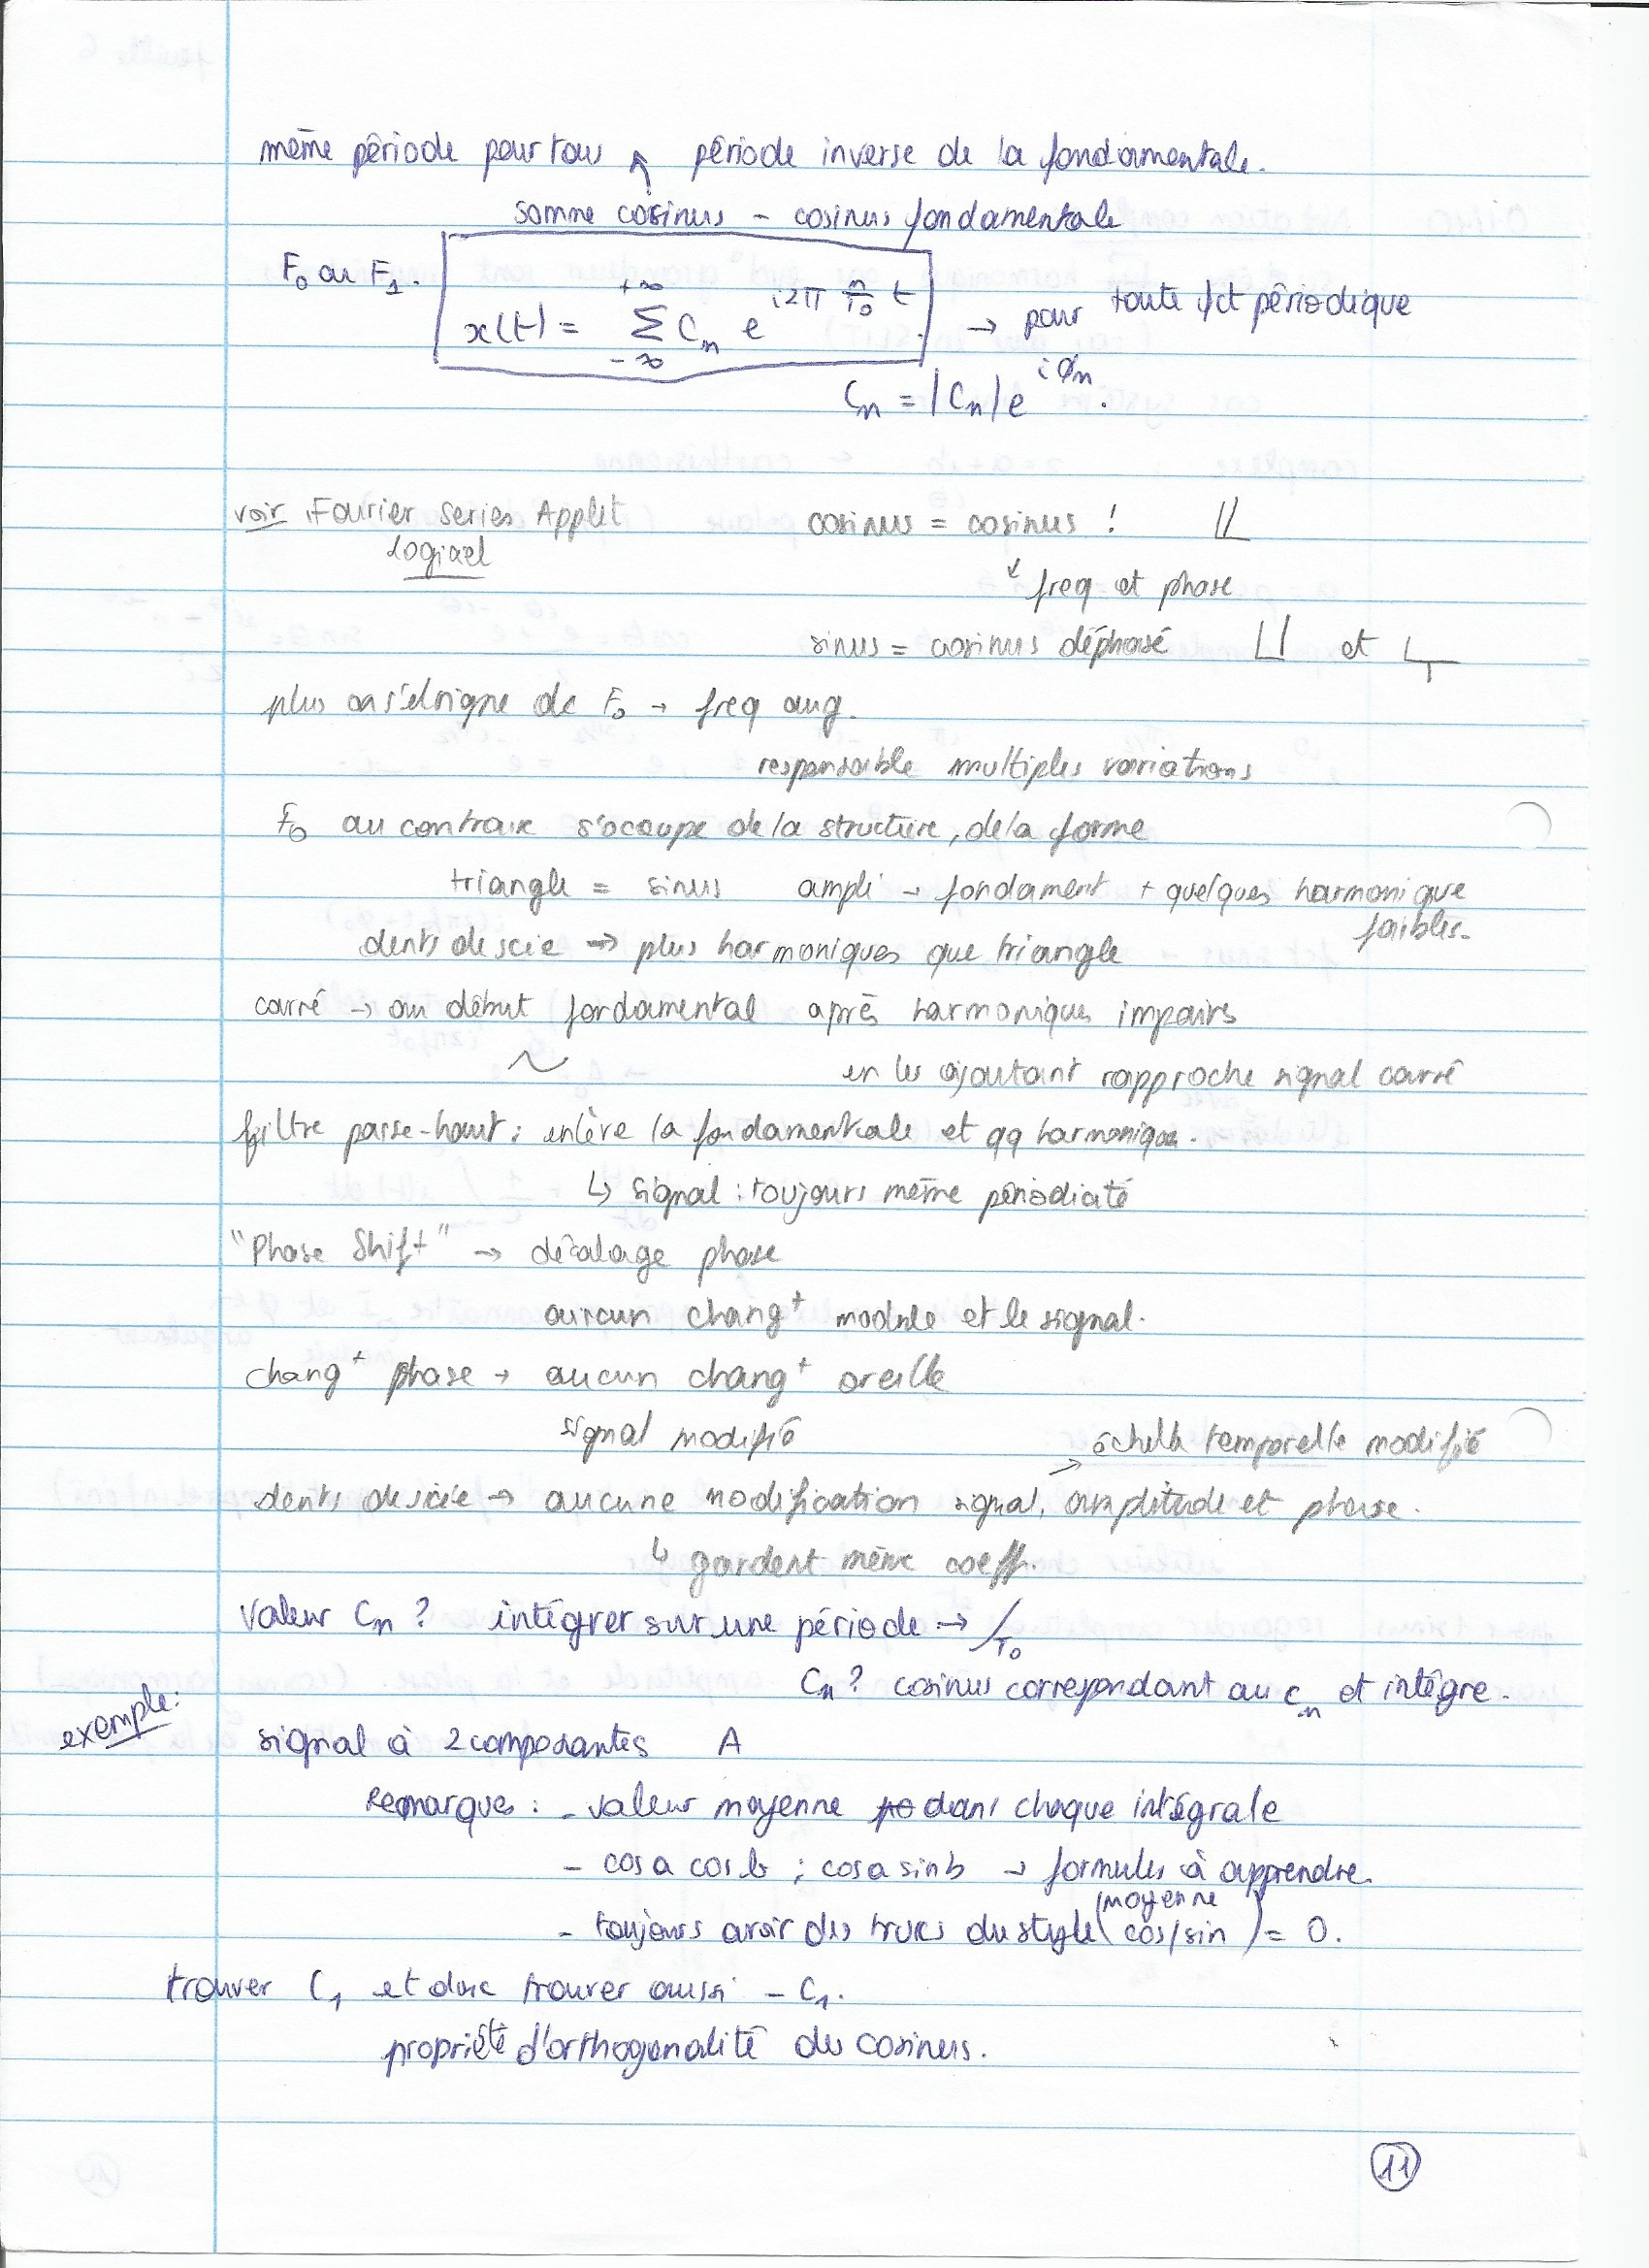 même période pour tous ↖ période inverse de la fondamentale.
somme cosinus - cosinus fondamentale
F₀ ou F₁.
x(t) = Σ_{-∞}^{+∞} Cₙ e^{i2π n/T₀ t} → pour toute fct périodique
Cₙ = |Cₙ| e^{iφₙ}.
voir Fourier Series Applet cosinus = cosinus !
Logiciel
↙ freq et phase
sinus = cosinus déphasé et
plus on s'éloigne de F₀ → freq aug.
responsable multiples variations
F₀ au contraire s'occupe de la structure, de la forme
triangle = sinus ampli → fondament + quelques harmonique
faibles.
dents de scie → plus harmoniques que triangle
carré → au début fondamental après harmoniques impairs
~ en les ajoutant rapproche signal carré
filtre passe-haut : enlève la fondamentale et qq harmonique.
↳ signal : toujours même périodicité
"Phase Shift" → décalage phase
aucun chang⁺ module et le signal.
chang⁺ phase → aucun chang⁺ oreille
signal modifié
↗ échelle temporelle modifié
dents de sciée → aucune modification signal, amplitude et phase.
↳ gardent même coeff.
Valeur Cₙ ? intégrer sur une période → /T₀
Cₙ ? cosinus correspondant au cₙ et intègre.
exemple:
signal à 2 composantes A
Remarque : - valeur moyenne dans chaque intégrale
- cos a cos b ; cos a sin b → formules à apprendre.
- toujours avoir des trucs du style (moyenne cos/sin) = 0.
trouver C₁ et donc trouver aussi - C₁.
propriété d'orthogonalité des cosinus.
11